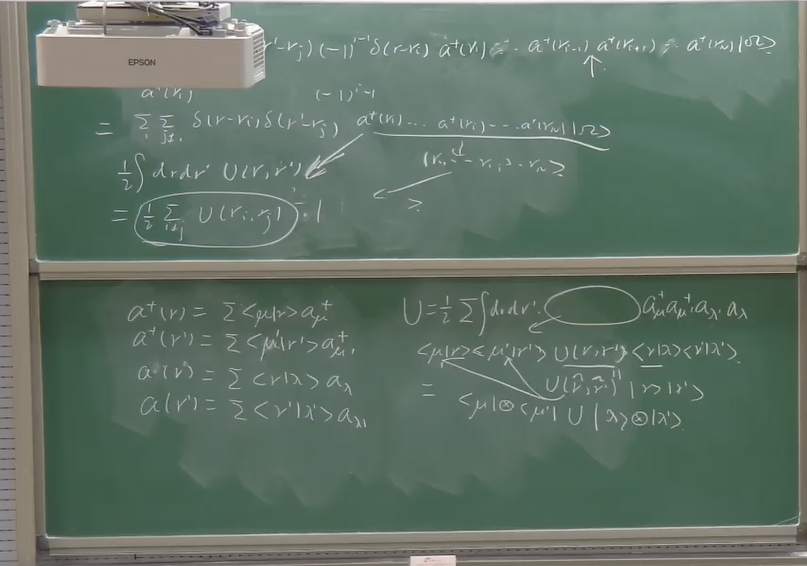 EPSON
r'-r_j) (-1)^{i-1} δ(r-r_i) a⁺(r₁) … a⁺(r_{i-1}) a⁺(r_{i+1}) … a⁺(r_N)|Ω>
a⁺(r_i) (-1)^{i-1}
= Σ_i Σ_{j≠i} δ(r-r_i) δ(r'-r_j) a⁺(r₁) … a⁺(r_i) … a⁺(r_N)|Ω>
½∫drdr' U(r,r')
= ½ Σ_{i≠j} U(r_i,r_j)
>
a⁺(r) = Σ<μ|r> a_μ⁺
a⁺(r') = Σ<μ'|r'> a_{μ'}⁺
a(r) = Σ<r|λ> a_λ
a(r') = Σ<r'|λ'> a_{λ'}
U = ½ Σ∫drdr' a_μ⁺ a_{μ'}⁺ a_{λ'} a_λ
<μ|r><μ'|r'> U(r,r') <r|λ><r'|λ'>
U(r̂,r̂') |r>|r'>
= <μ|⊗<μ'| U |λ>⊗|λ'>